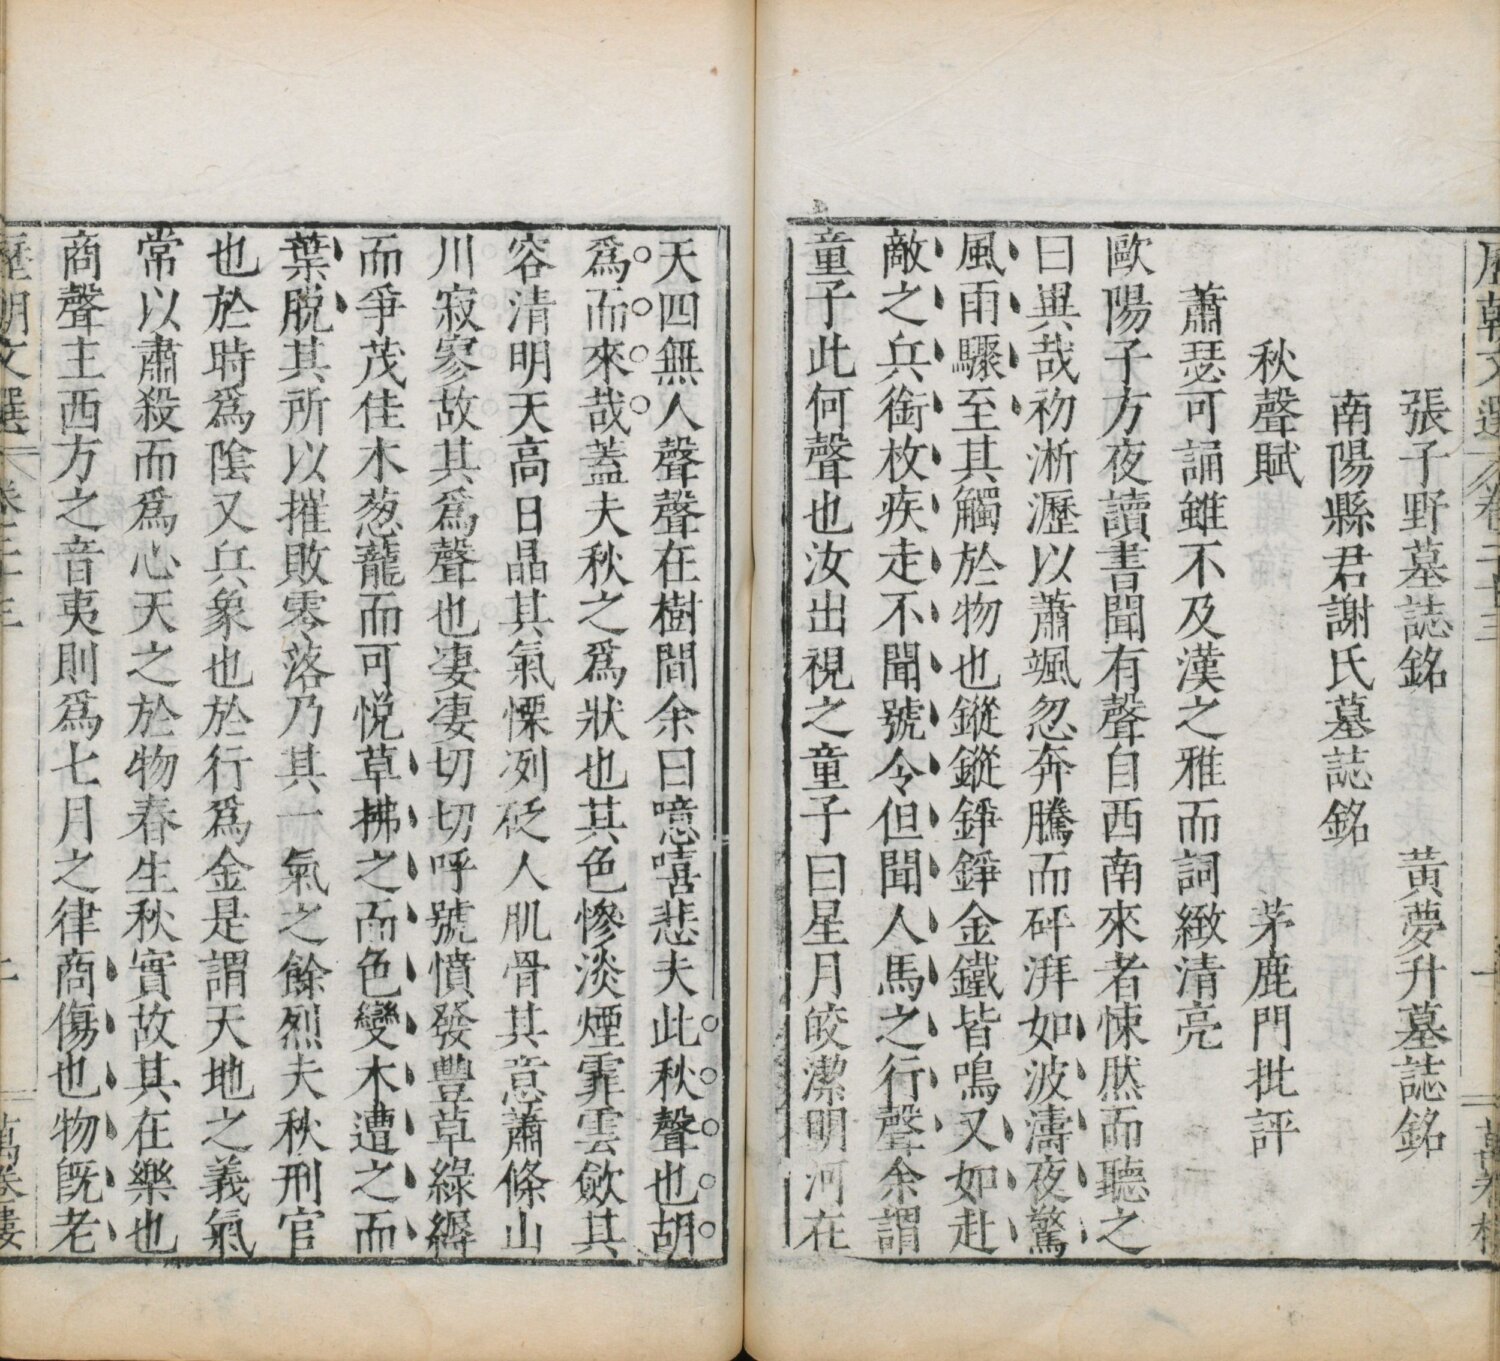 張子野墓誌銘　黃夢升墓誌銘
南陽縣君謝氏墓誌銘
秋聲賦　茅鹿門批評
蕭瑟可誦雖不及漢之雅而詞緻清亮
歐陽子方夜讀書聞有聲自西南來者悚然而聽之
曰異哉初淅瀝以蕭颯忽奔騰而砰湃如波濤夜驚
風雨驟至其觸於物也鏦鏦錚錚金鐵皆鳴又如赴
敵之兵銜枚疾走不聞號令但聞人馬之行聲余謂
童子此何聲也汝出視之童子曰星月皎潔明河在
天四無人聲聲在樹間余曰噫嘻悲夫此秋聲也胡
爲而來哉蓋夫秋之爲狀也其色慘淡煙霏雲歛其
容清明天高日晶其氣慄冽砭人肌骨其意蕭條山
川寂寥故其爲聲也凄凄切切呼號憤發豐草綠縟
而爭茂佳木葱蘢而可悅草拂之而色變木遭之而
葉脫其所以摧敗零落乃其一氣之餘烈夫秋刑官
也於時爲陰又兵象也於行爲金是謂天地之義氣
常以肅殺而爲心天之於物春生秋實故其在樂也
商聲主西方之音夷則爲七月之律商傷也物旣老
歷朝文選　卷二十三　二　萬卷樓